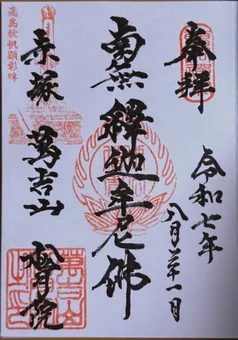 奉拝
令和七年
八月二十一日
南無釋迦牟尼佛
赤塚 萬吉山 松月院
高島秋帆顕彰碑